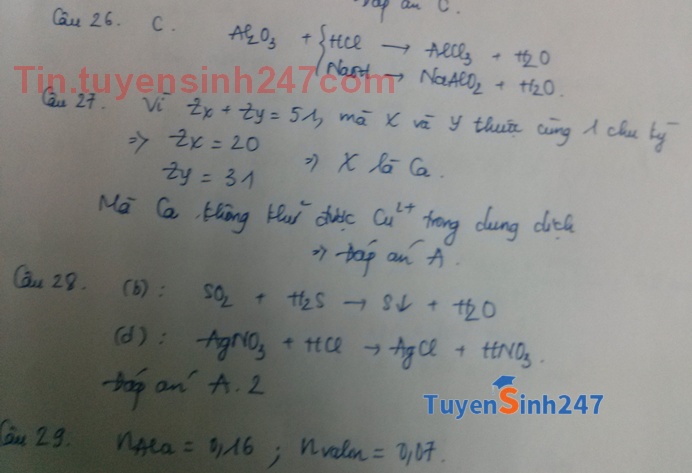 đáp án C.
Câu 26. C. Al2O3 + { HCl → AlCl3 + H2O
NaOH → NaAlO2 + H2O.
Tin.tuyensinh247.com
Câu 27. Vì Zx + Zy = 51, mà X và Y thuộc cùng 1 chu kỳ
=> Zx = 20
Zy = 31 => X là Ca.
Mà Ca không khử được Cu2+ trong dung dịch
=> Đáp án A.
Câu 28. (b): SO2 + H2S → S↓ + H2O
(d): AgNO3 + HCl → AgCl + HNO3.
Đáp án A. 2
TuyenSinh247
Câu 29. nAla = 0,16 ; nvalin = 0,07.